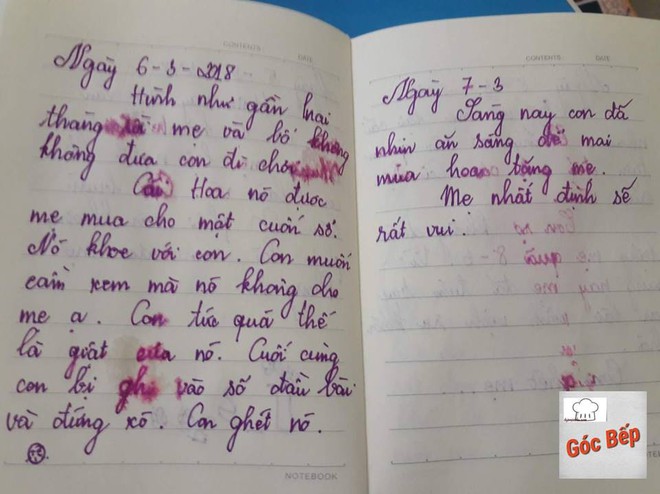 CONTENTS:
DATE
Ngày 6-3-2018
Hình như gần hai
tháng rồi mẹ và bố không
không đưa con đi chơi
Cái Hoa nó được
mẹ mua cho một cuốn sổ.
Nó khoe với con. Con muốn
cầm xem mà nó không cho
mẹ ạ. Con tức quá thế
là giật của nó. Cuối cùng
con bị ghi vào sổ đầu bài
và đứng xó. Con ghét nó.
NOTEBOOK
CONTENTS:
DATE
Ngày 7-3
Sáng nay con đã
nhịn ăn sáng để mai
mua hoa tặng mẹ.
Mẹ nhất định sẽ
rất vui.
Góc Bếp